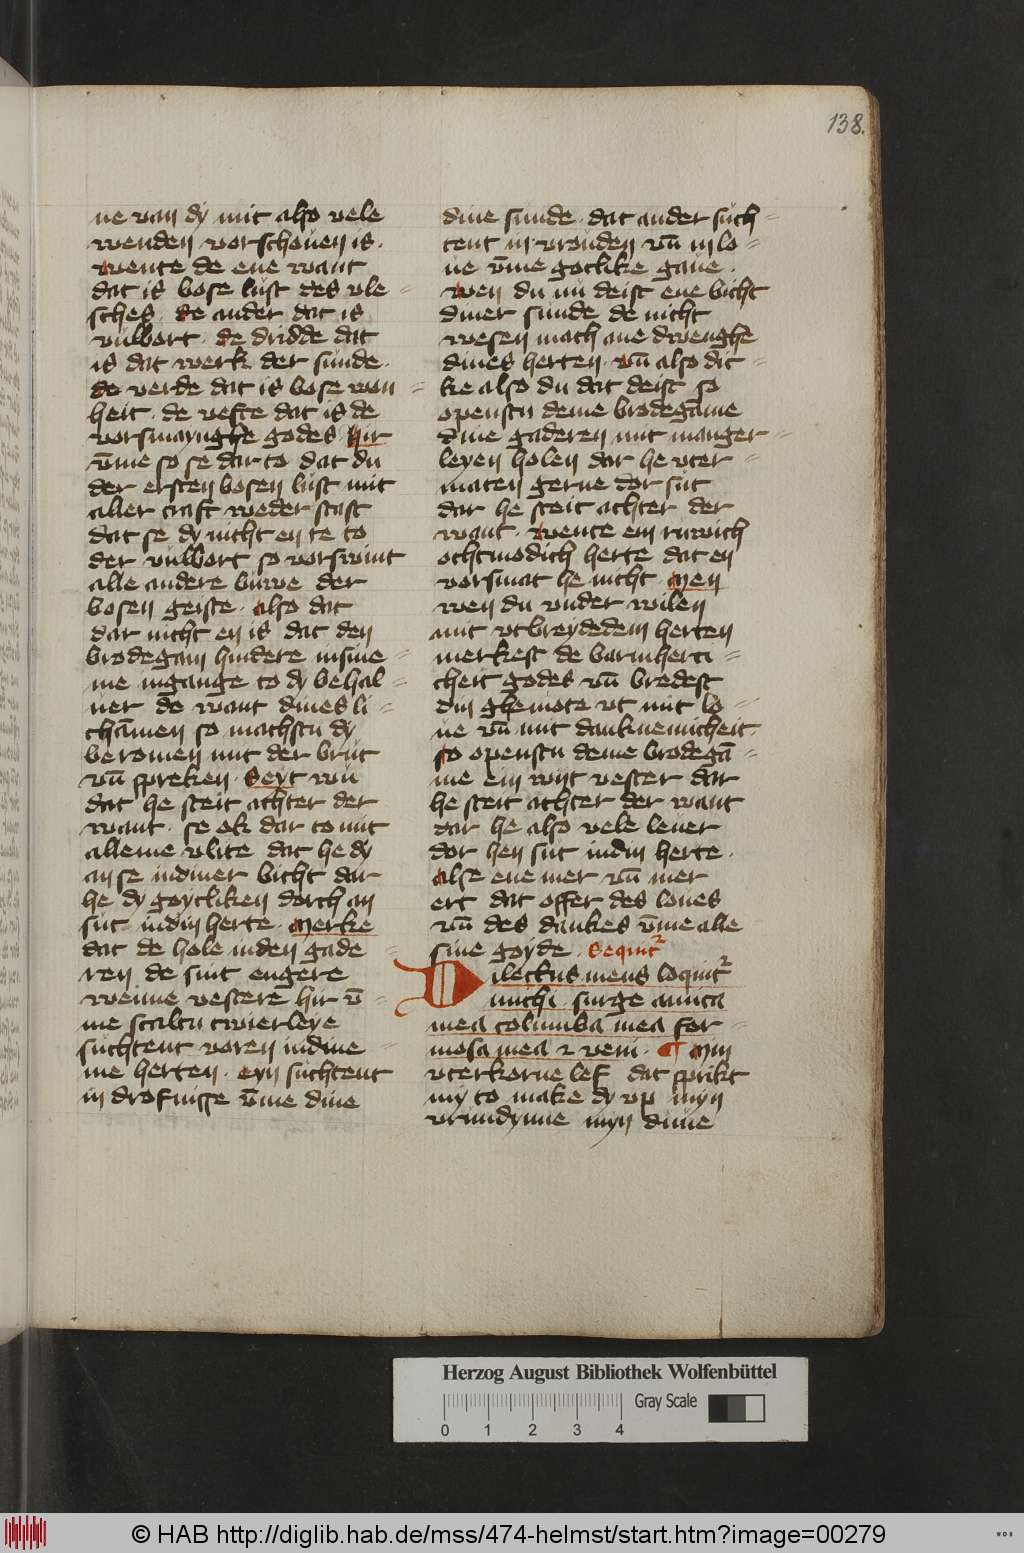 138.
ne van dy mit also vele
wenden vorschouen is.
wente de ene want
dat is bose lust des vle=
sches. de ander dat is
vulbort. de dridde dat
is dat werk der sunde.
de verde dat is bose won=
heit. de vefte dat is de
vorsmaynghe godes hir
v̄me so se dar to dat du
der ersten bosen lust mit
aller craft weder stast
dat se dy nicht en te to
der vulbort so vorswint
alle andere buwe der
bosen geiste. also dat
dar nicht en is dat den
brodegam hindere insine=
me ingange to dy behal=
uer de want dines li=
chāmen so machstu dy
beromen mit der brut
vn̄ spreken. Seyt wu
dat he steit achter der
want. se ok dar to mit
alleme vlite dat he dy
an se indiner bicht dar
he dy goytliken dorch an
sut indin herte. Merke
dat de hole inden gade=
ren de sint engere
wenne vestere hir v̄=
me scaltu twierleye
suchtent voren indine=
me herten. eyn suchtent
in drofnisse v̄me dine
dine sunde. dat ander such=
tent in vrouden vn̄ in lo=
ue v̄me gotlike gaue.
wen du nu deist ene bicht
diner sunde de nicht
wesen mach ane dwenghe
dines herten. vn̄ also dic=
ke also du dat deist so
openstu deme brodegāme
dine gaderen mit manger=
leyen holen dar he vter=
maten gerne dor sut
dar he steit achter der
want. wente ein ruwich
othmodich herte dat en
vorsmat he nicht. Men
wen du vnder wilen
mit vtbreydedem herten
merkest de barmherti=
cheit godes vn̄ bredest
din ghemote vt mit lo=
ue vn̄ mit danknemicheit.
so openstu deme brodegā=
me ein wyt vester dar
he steit achter der want
dar he also vele leuer
dor hen sut indin herte.
alse ene mer vn̄ mer
ert dat offer des loues
vn̄ des dankes v̄me alle
sine goyde. Sequitr
Dilectus meus loquitr
michi. surge amica
mea columba mea for=
mosa mea 2 veni. ¶ Myn
vterkorne lef dat sprikt
my to make dy vp myn
vrundynne myn duue
Herzog August Bibliothek Wolfenbüttel
Gray Scale
0 1 2 3 4
© HAB http://diglib.hab.de/mss/474-helmst/start.htm?image=00279